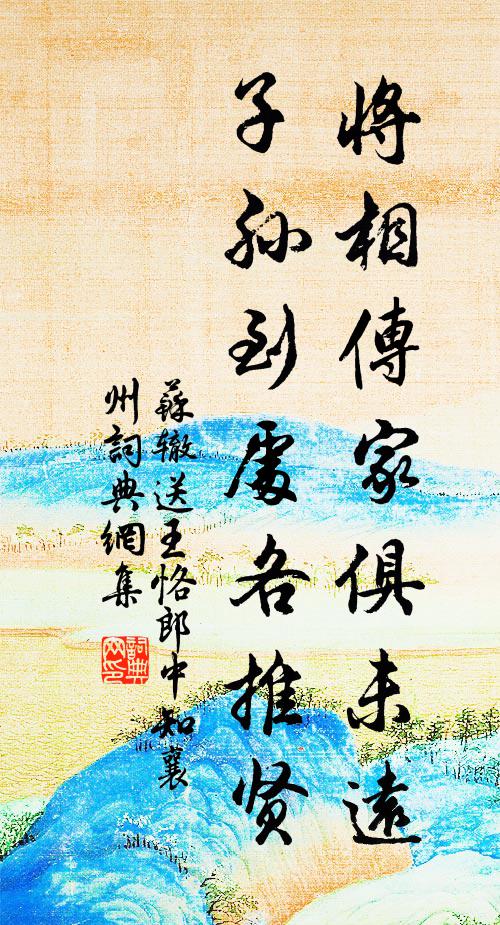 將相傳家俱未遠
子孫到處各推贤
蘇辙送王恪郎中知襄
州詞典網集
詞典